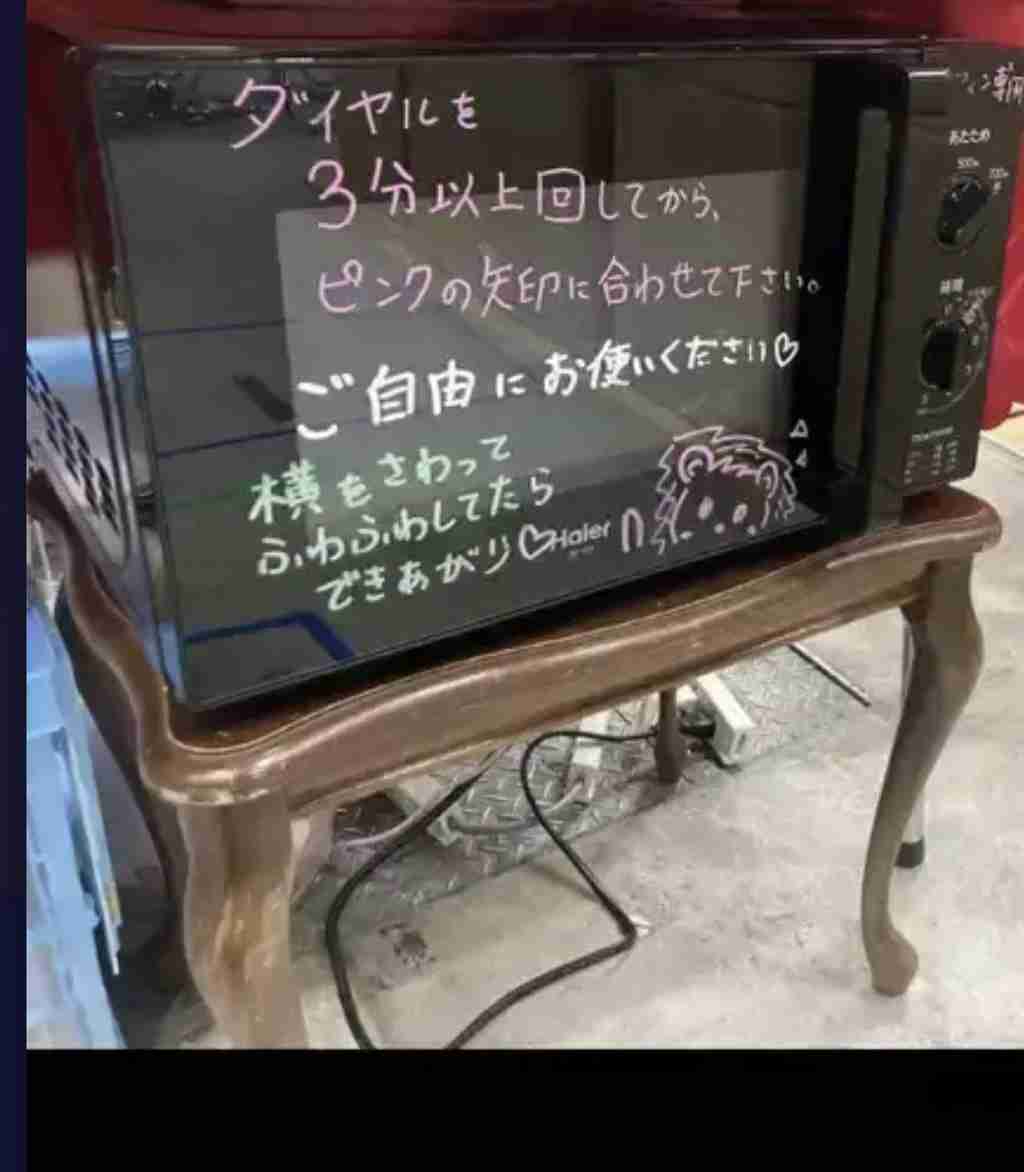 ダイヤルを
3分以上回してから、
ピンクの矢印に合わせて下さい。
ご自由にお使いください♡
横をさわって
ふわふわしてたら
できあがり♡
Haier
あたため
500w
700w
時間